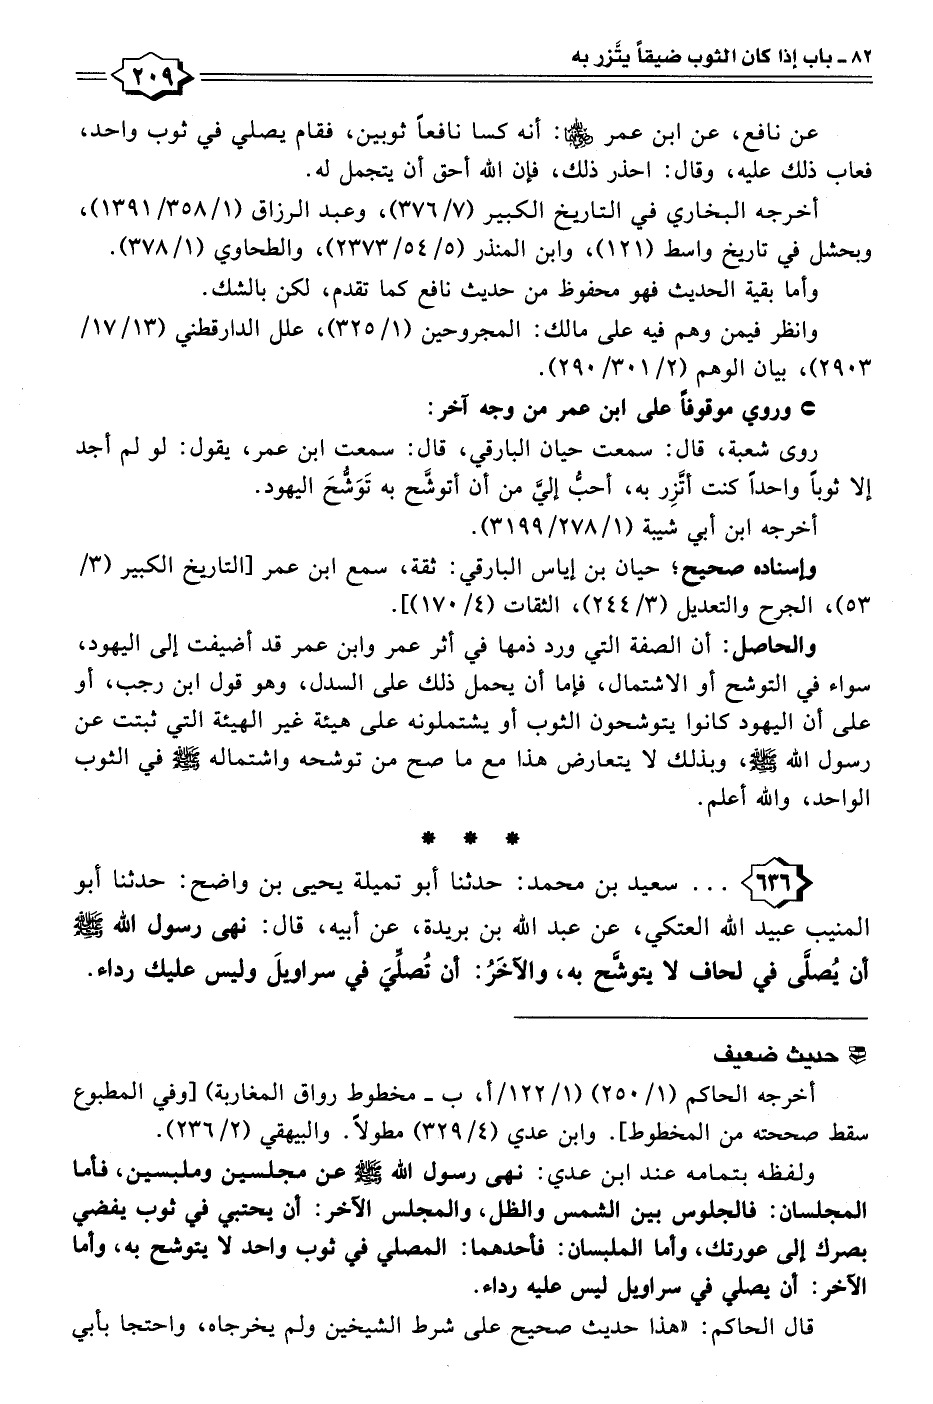 ٨٢ - باب إذا كان الثوب ضيقاً يتَّزر به
٢٠٩
عن نافع، عن ابن عمر ﵄: أنه كسا نافعاً ثوبين، فقام يصلي في ثوب واحد،
فعاب ذلك عليه، وقال: احذر ذلك، فإن الله أحق أن يتجمل له.
أخرجه البخاري في التاريخ الكبير (٣٧٦/٧)، وعبد الرزاق (١٣٩١/٣٥٨/١)،
وبحشل في تاريخ واسط (١٢١)، وابن المنذر (٢٣٧٣/٥٤/٥)، والطحاوي (٣٧٨/١).
وأما بقية الحديث فهو محفوظ من حديث نافع كما تقدم، لكن بالشك.
وانظر فيمن وهم فيه على مالك: المجروحين (٣٢٥/١)، علل الدارقطني (١٧/١٣/
٢٩٠٣)، بيان الوهم (٢٩٠/٣٠١/٢).
وروي موقوفاً على ابن عمر من وجه آخر:
روى شعبة، قال: سمعت حيان البارقي، قال: سمعت ابن عمر، يقول: لو لم أجد
إلا ثوباً واحداً كنت أتَّزِر به، أحبُّ إليَّ من أن أتوشَّح به تَوَشُّحَ اليهود.
أخرجه ابن أبي شيبة (٣١٩٩/٢٧٨/١).
وإسناده صحيح؛ حيان بن إياس البارقي: ثقة، سمع ابن عمر [التاريخ الكبير (٣/
٥٣)، الجرح والتعديل (٢٤٤/٣)، الثقات (١٧٠/٤)].
والحاصل: أن الصفة التي ورد ذمها في أثر عمر وابن عمر قد أضيفت إلى اليهود،
سواء في التوشح أو الاشتمال، فإما أن يحمل ذلك على السدل، وهو قول ابن رجب، أو
على أن اليهود كانوا يتوشحون الثوب أو يشتملونه على هيئة غير الهيئة التي ثبتت عن
رسول الله ﷺ، وبذلك لا يتعارض هذا مع ما صح من توشحه واشتماله ﷺ في الثوب
الواحد، والله أعلم.
* * *
٦٣٦ ... سعيد بن محمد: حدثنا أبو تميلة يحيى بن واضح: حدثنا أبو
المنيب عبيد الله العتكي، عن عبد الله بن بريدة، عن أبيه، قال: نهى رسول الله ﷺ
أن يُصلَّى في لحاف لا يتوشَّح به، والآخَرُ: أن تُصلِّيَ في سراويلَ وليس عليك رداء.
حديث ضعيف
أخرجه الحاكم (٢٥٠/١) (١٢٢/١/أ، ب - مخطوط رواق المغاربة) [وفي المطبوع
سقط صححته من المخطوط]. وابن عدي (٣٢٩/٤) مطولاً. والبيهقي (٢٣٦/٢).
ولفظه بتمامه عند ابن عدي: نهى رسول الله ﷺ عن مجلسين وملبسين، فأما
المجلسان: فالجلوس بين الشمس والظل، والمجلس الآخر: أن يحتبي في ثوب يفضي
بصرك إلى عورتك، وأما الملبسان: فأحدهما: المصلي في ثوب واحد لا يتوشح به، وأما
الآخر: أن يصلي في سراويل ليس عليه رداء.
قال الحاكم: «هذا حديث صحيح على شرط الشيخين ولم يخرجاه، واحتجا بأبي